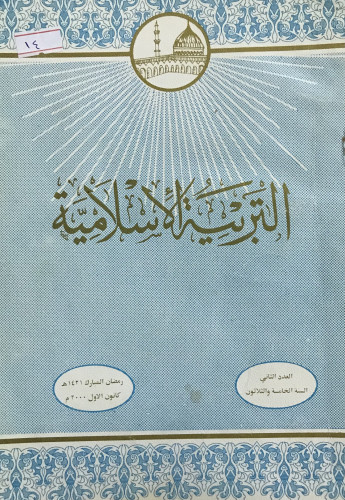 ١٤
التربية الإسلامية
العدد الثاني
السنة الخامسة والثلاثون
رمضان المبارك ١٤٢١ هـ
كانون الاول ٢٠٠٠ م